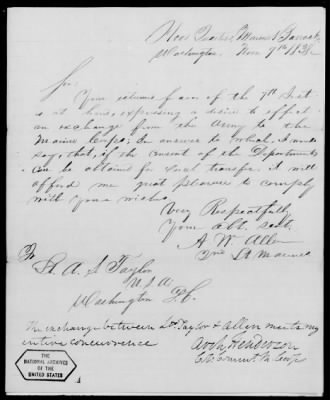 Head Quarters, Marine Barracks
Washington. Nov 9th 1838
Sir.
Your esteemed favor of the 7th Inst
is at hand, expressing a desire to effect
an exchange from the Army to the
Marine Corps; In answer to which, I would
say, that, if the consent of the Departments
can be obtained for such transfer. it will
afford me great pleasure to comply
with your wishes.
Very Respectfully
Your obt. servt.
A. W. Allen
2nd Lt Marines
To
Lt. A. S. Taylor
U.S.A
Washington D.C.
The exchange between Lts Taylor & Allen meets my
entire concurrence
Arch Henderson
Col Commt M Corps
THE
NATIONAL ARCHIVES
OF THE
UNITED STATES